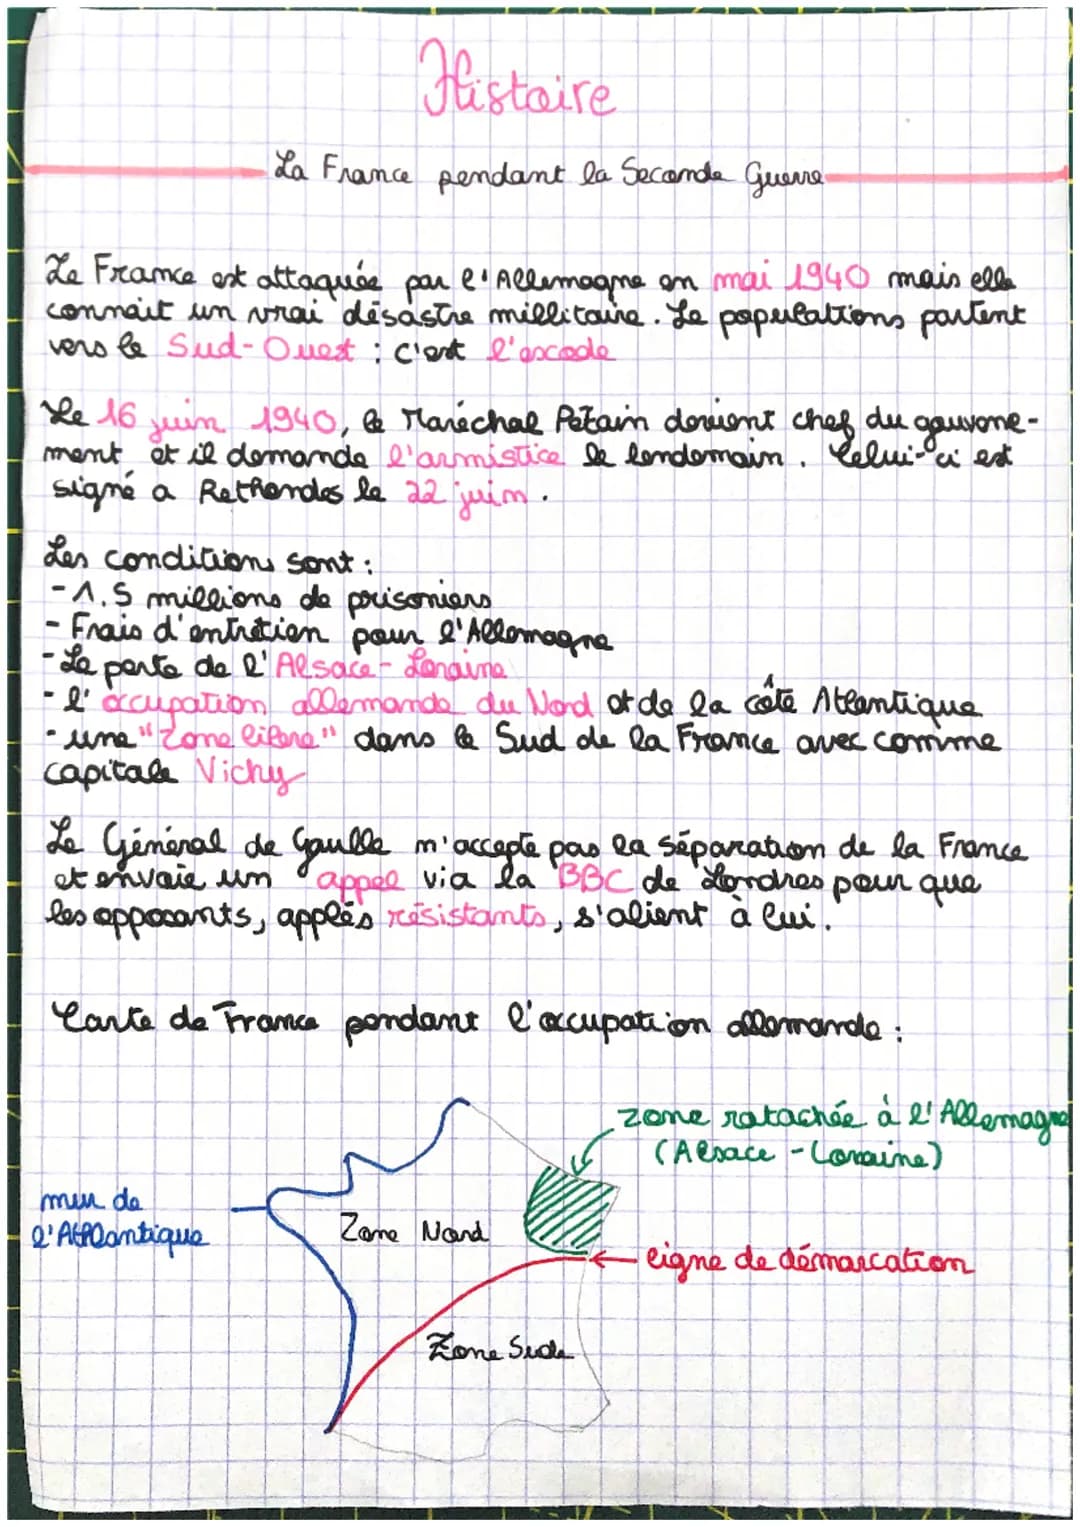 Histoire
La France pendant la Seconde Guerre
La France est attaquée par l'Allemagne en mai 1940 mais elle
connait un vrai désastre millitaire. Le populations partent
vers le Sud-Ouest : c'est l'exode
Le 16 juin 1940, le Maréchal Pétain devient chef du gouverne-
ment et il demande l'armistice le lendemain. Celui-ci est
signé a Rethondes le 22 juin.
Les conditions sont :
- 1.5 millions de prisoniers
- Frais d'entretien pour l'Allemagne
- La perte de l'Alsace-Loraine
- l'occupation allemande du Nord et de la côte Atlantique
- une "Zone libre" dans le Sud de la France avec comme
capitale Vichy
Le Général de Gaulle n'accepte pas la séparation de la France
et envoie un appel via la BBC de Londres pour que
les opposants, applés résistants, s'alient à lui.
Carte de France pendant l'occupation allemande :
zone ratachée à l'Allemagne
(Alsace - Loraine)
mur de
l'Atlantique
Zone Nord
ligne de démarcation
Zone Sude